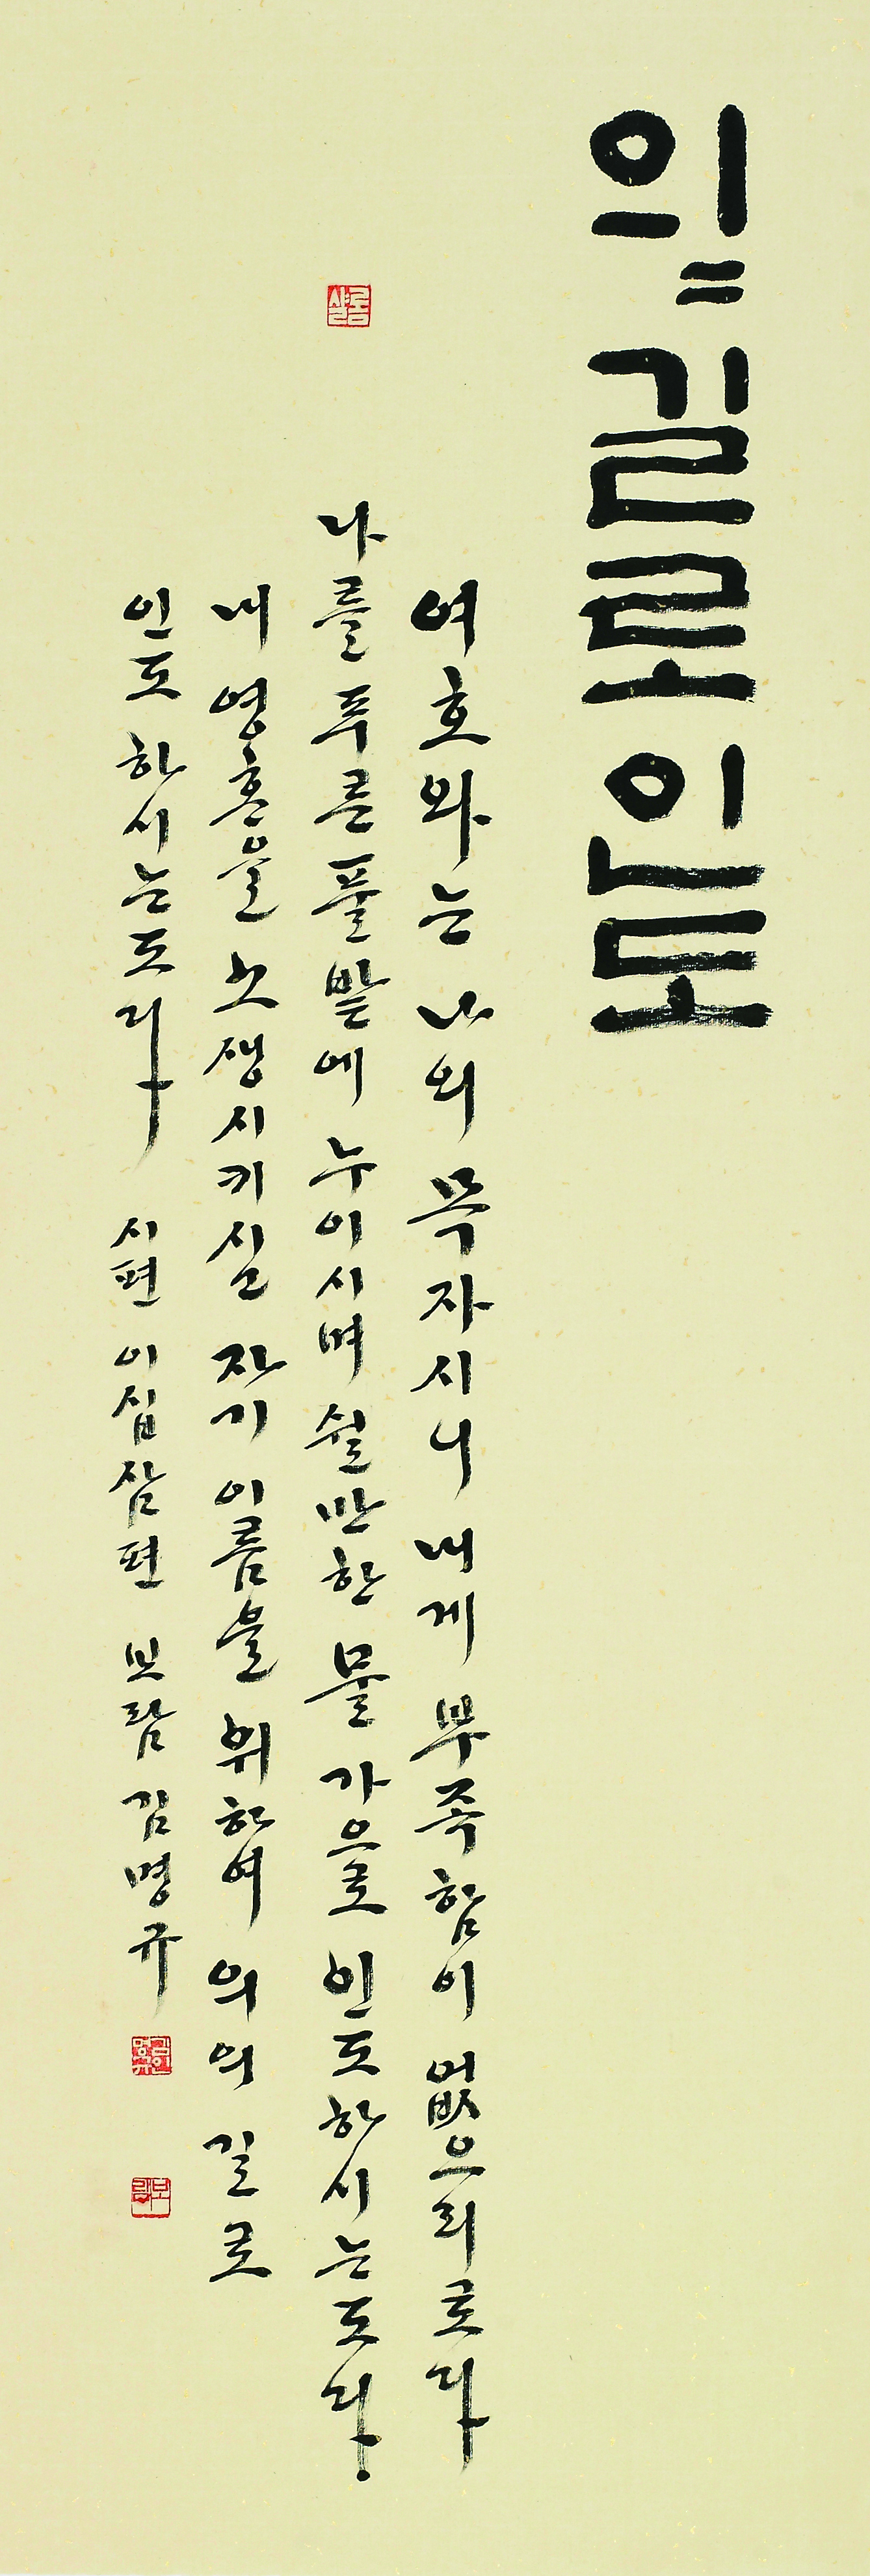 의〃길로인도
여호와는 나의 목자시니 내게 부족함이 없으리로다
샬롬
나를 푸른 풀밭에 누이시며 쉴만한 물가으로 인도하시는도다
내 영혼을 소생시키실 자기 이름을 위하여 의의 길로
인도하시는도다 시편 이십삼편 보람 김명규
보람